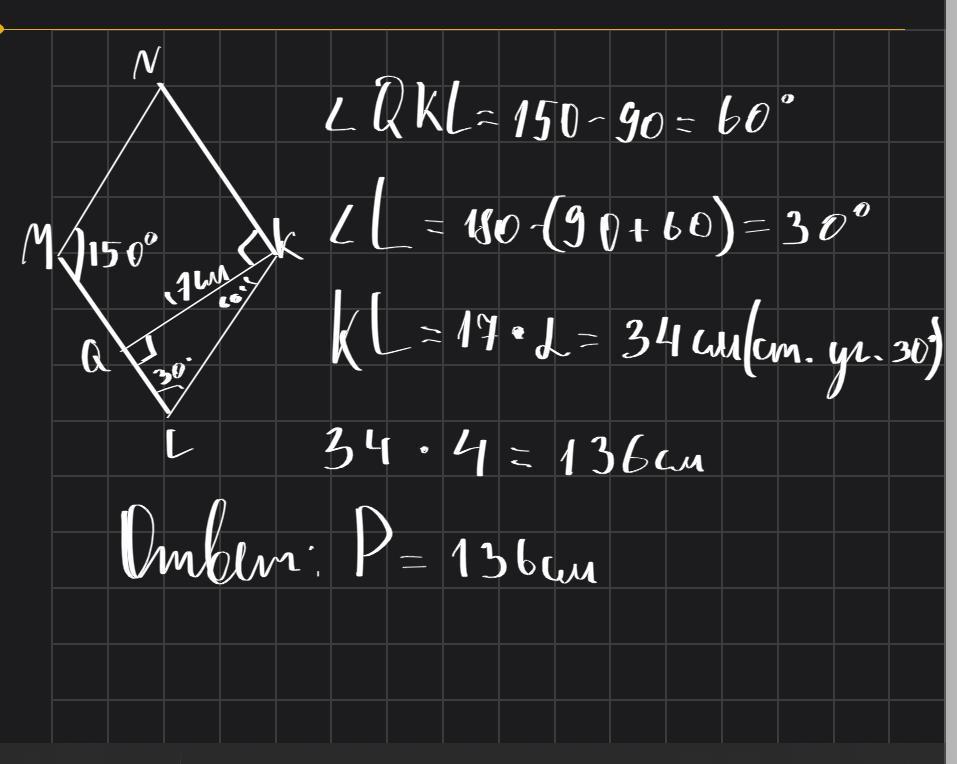 N
M 150° K
17 см
60°
Q
30°
L
∠QKL = 150 - 90 = 60°
∠L = 180 - (90 + 60) = 30°
KL = 17 · 2 = 34 см (ст. уг. 30°)
34 · 4 = 136 см
Ответ: P = 136 см